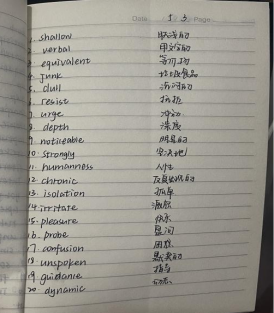 Date 1 3 Page
1. shallow 肤浅的
2. verbal
3. equivalent 等价物
4. junk 垃圾食品
5. dull
6. resist 抵抗
7. urge 冲动
8. depth 深度
9. noticeable 明显的
10. strongly 坚决地
11. humanness 人性
12. chronic
13. isolation 孤单
14. irritate 激怒
15. pleasure 快乐
16. probe 盘问
17. confusion 困惑
18. unspoken 默契的
19. guidance 指导
20. dynamic